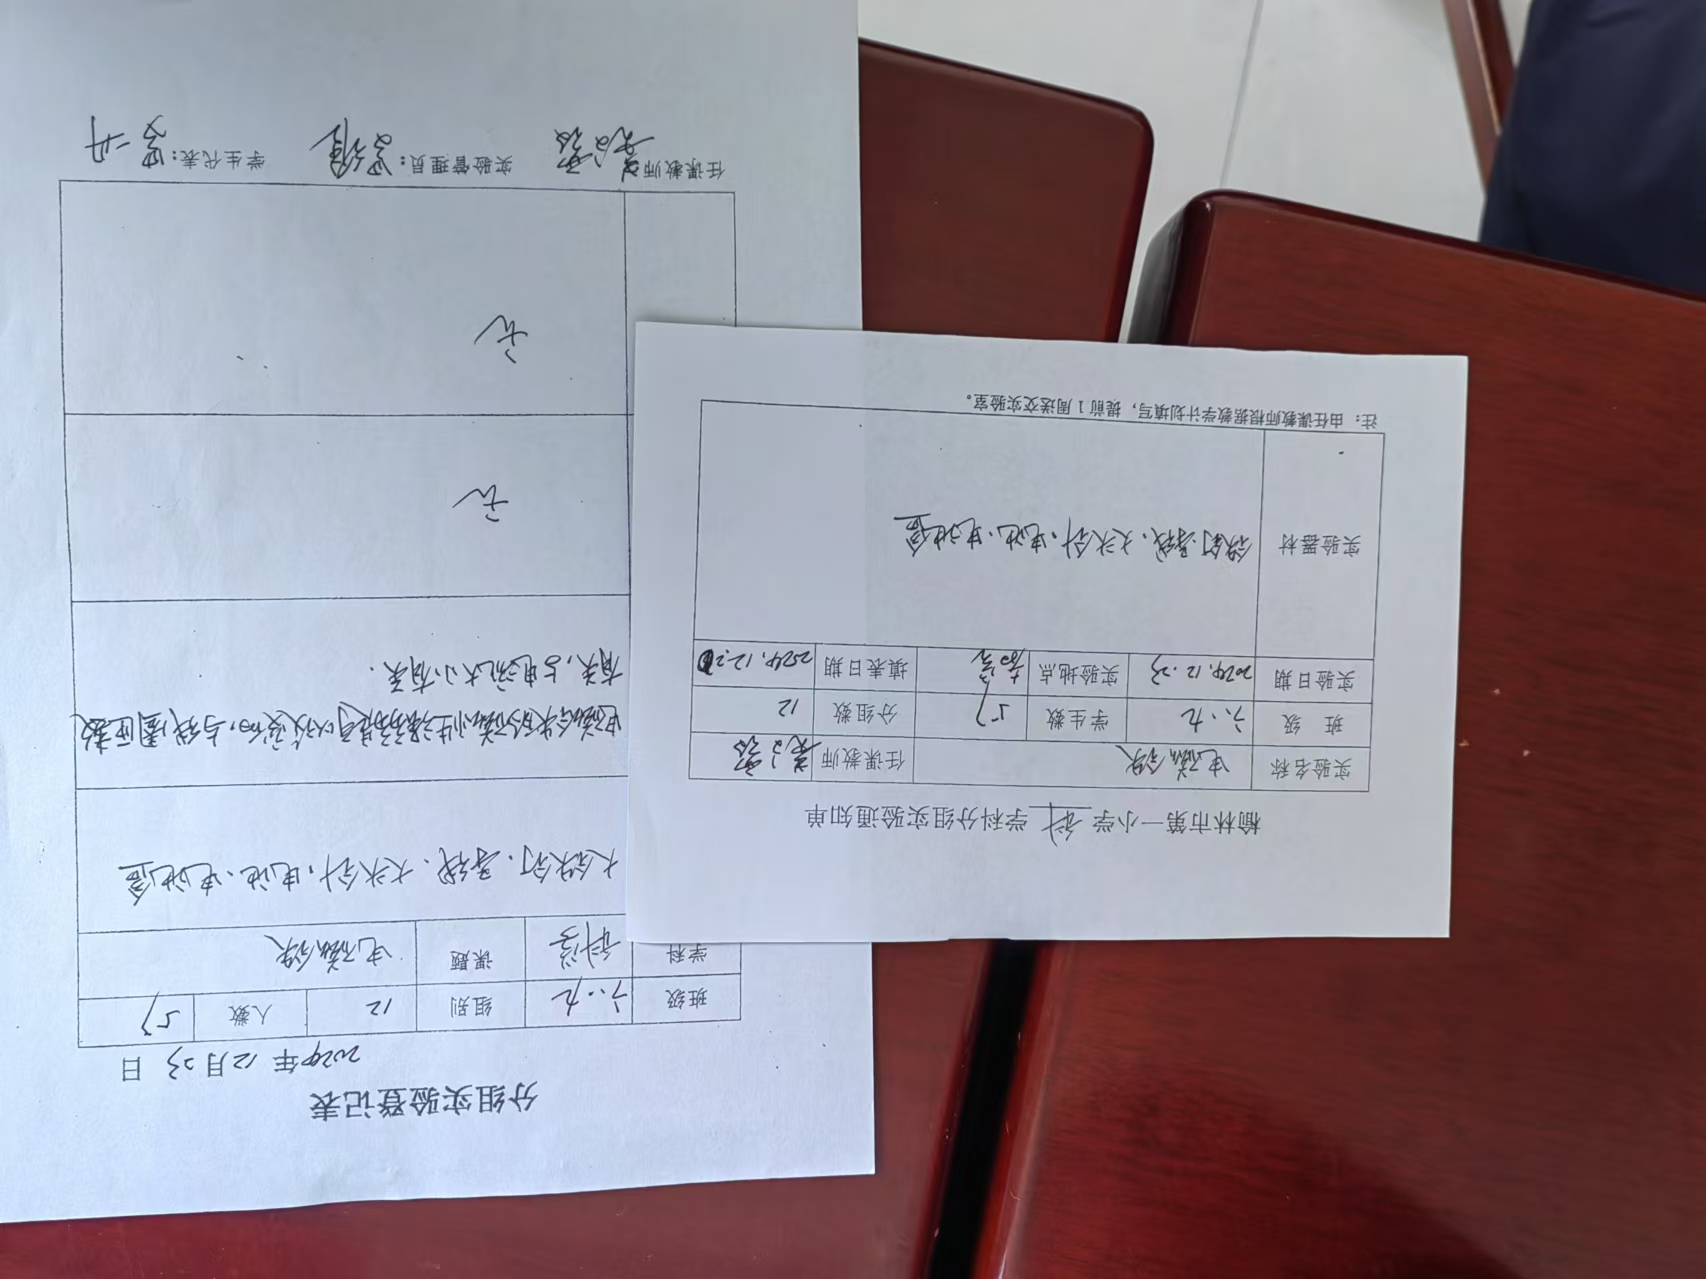 分组实验登记表
2024年 12月 23 日
班级 六.九 组别 12 人数 57
学科 科学 课题 电磁铁
大铁钉、导线、大头针、电池、电池盒
电磁铁的磁性强弱是可以改变的,与线圈匝数
有关,与电流大小有关.
无
无
任课教师: 实验管理员: 学生代表:
榆林市第一小学 科 学科分组实验通知单
实验名称 电磁铁 任课教师
班 级 六.九 学生数 57 分组数 12
实验日期 2024.12.23 实验地点 填表日期 2024.12.20
实验器材 铁钉、导线、大头针、电池、电池盒
注:由任课教师根据教学计划填写,提前1周送交实验室。